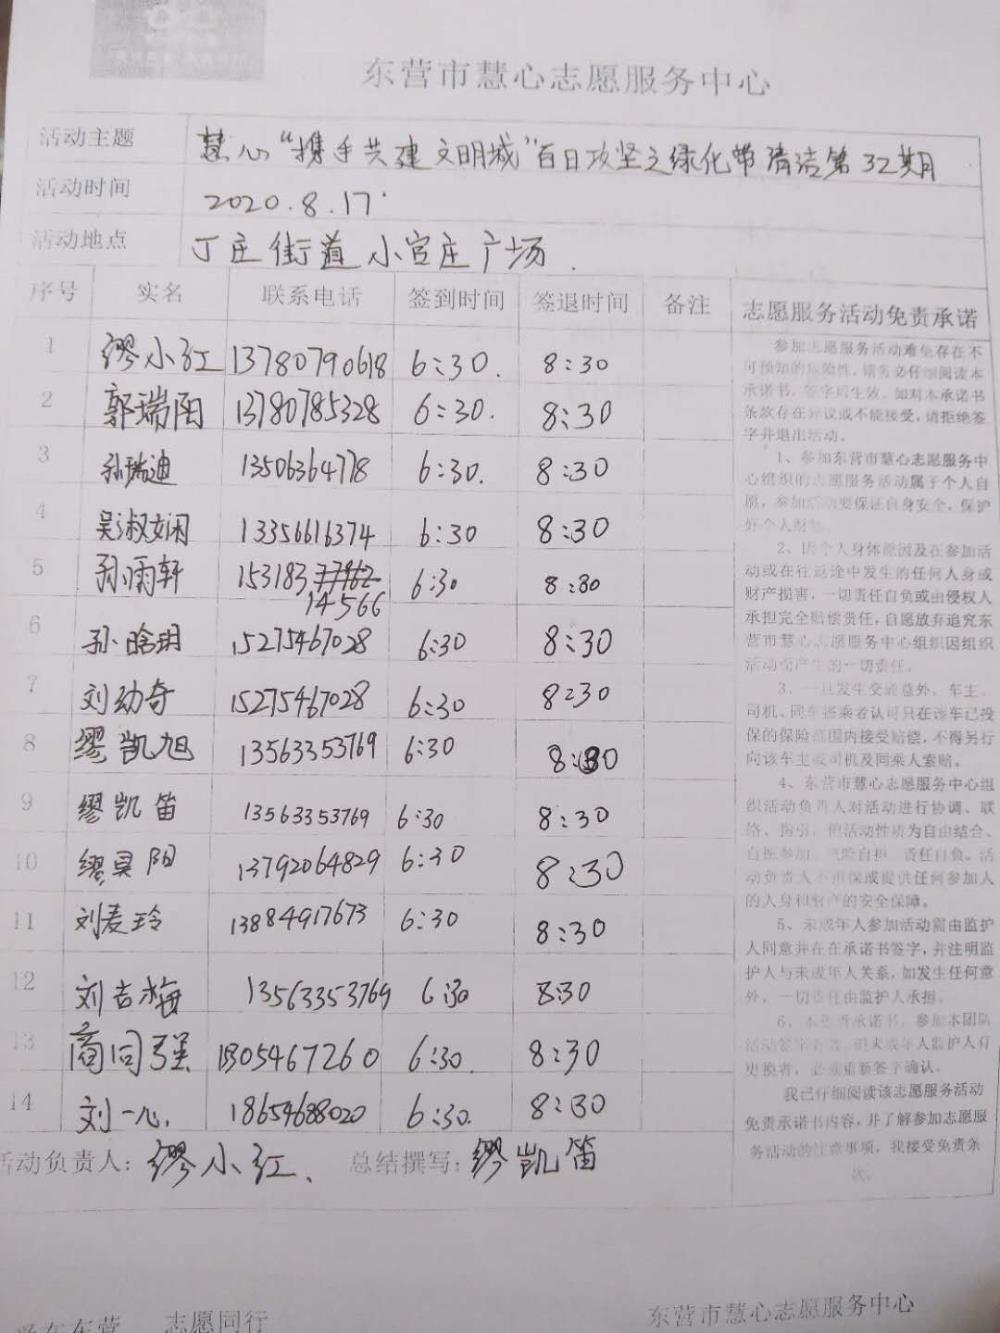 东营市慧心志愿服务中心
活动主题 慧心“携手共建文明城”百日攻坚之绿化带清洁第32期
活动时间 2020.8.17
活动地点 丁庄街道小官庄广场.
序号 实名 联系电话 签到时间 签退时间 备注
1 缪小红 13780790618 6:30. 8:30
2 郭瑞阳 13780785328 6:30. 8:30
3 孙瑞迪 13506364778 6:30. 8:30
4 吴淑娴 13356616374 6:30 8:30
5 孙雨轩 153183 14566 6:30 8:30
6 孙晗玥 15275467028 6:30 8:30
7 刘幼奇 15275467028 6:30 8:30
8 缪凯旭 13563353769 6:30 8:30
9 缪凯笛 13563353769 6:30 8:30
10 缪昊阳 13792064829 6:30 8:30
11 刘麦玲 13884917673 6:30 8:30
12 刘吉梅 13563353769 6:30 8:30
13 商同强 1305467260 6:30. 8:30
14 刘一心. 18654688020 6:30. 8:30
活动负责人: 缪小红、 总结撰写: 缪凯笛
志愿服务活动免责承诺
参加志愿服务活动难免存在不
可预知的危险性,请务必仔细阅读本
承诺书,签字后生效。如对本承诺书
条款存在异议或不能接受,请拒绝签
字并退出活动。
1、参加东营市慧心志愿服务中
心组织的志愿服务活动属于个人自
愿,参加活动要保证自身安全,保护
好个人财物。
2、因个人身体原因及在参加活
动或在往返途中发生的任何人身或
财产损害,一切责任自负或由侵权人
承担完全赔偿责任,自愿放弃追究东
营市慧心志愿服务中心组织因组织
活动而产生的一切责任。
3、一旦发生交通意外、车主、
司机、同车搭乘者认可只在该车已投
保的保险范围内接受赔偿,不得另行
向该车主或司机及同乘人索赔。
4、东营市慧心志愿服务中心组
织活动负责人对活动进行协调、联
络、指引,但活动性质为自由结合、
自愿参加、风险自担、责任自负。活
动负责人不担保或提供任何参加人
的人身和财产的安全保障。
5、未成年人参加活动需由监护
人同意并在在承诺书签字,并注明监
护人与未成年人关系,如发生任何意
外,一切责任由监护人承担。
6、本免责承诺书,参加本团队
活动签字有效,但未成年人监护人有
更换者,必须重新签字确认。
我已仔细阅读该志愿服务活动
免责承诺书内容,并了解参加志愿服
务活动的注意事项,我接受免责条
款。
爱在东营 志愿同行
东营市慧心志愿服务中心